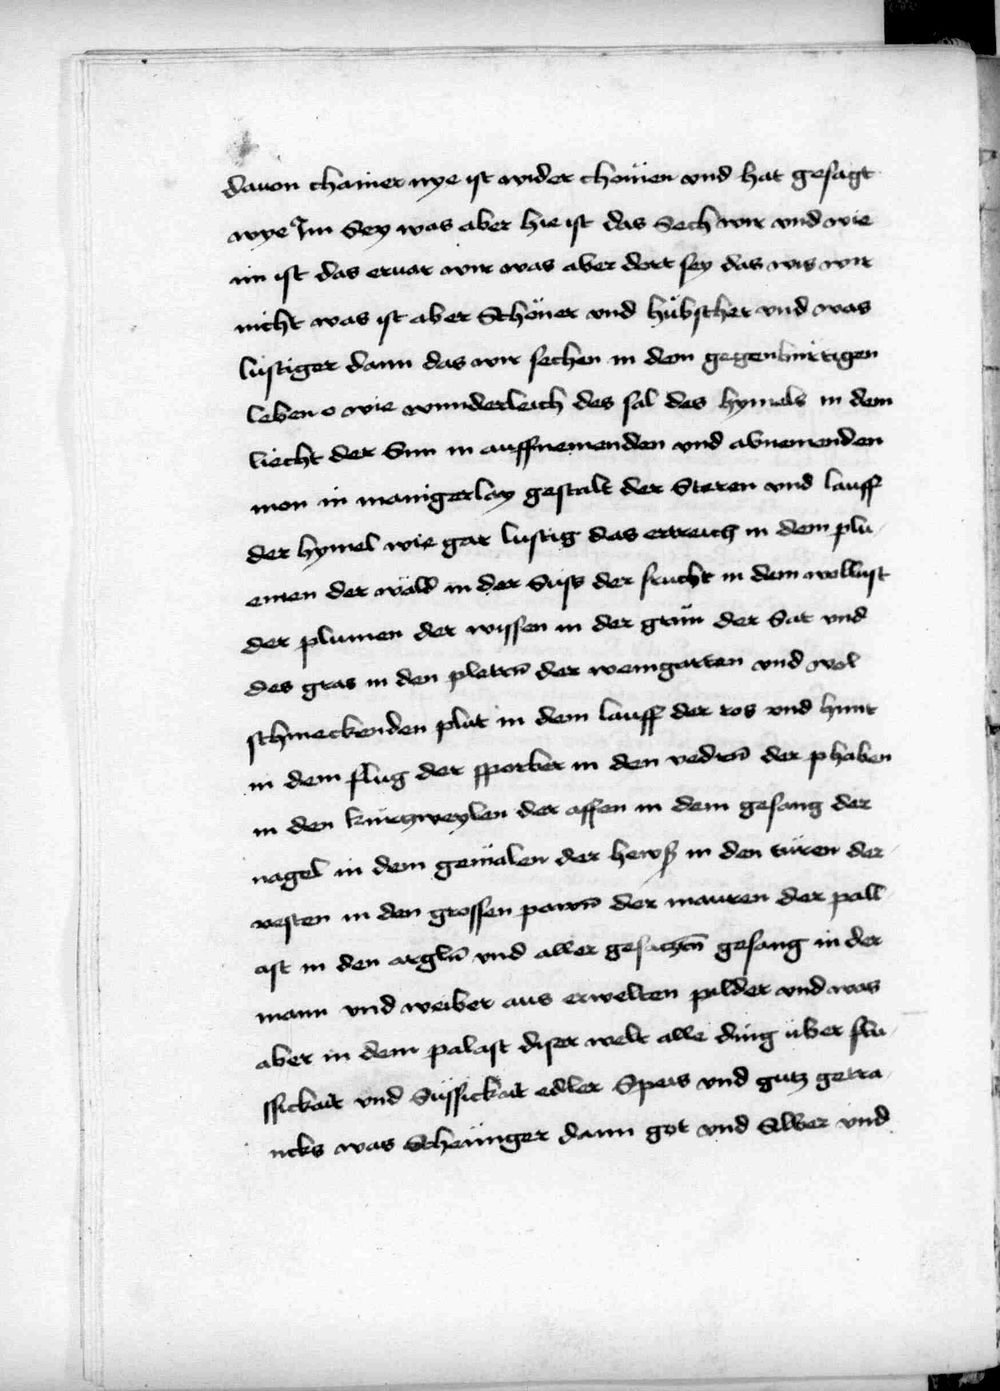 dauon chainer nye ist wider chomen vnd hat gesagt
wye Im Sey was aber hie ist das Sech wir vnd wie
im ist das eruar wir was aber dort sey das wis wir
nicht was ist aber Schöner vnd hübscher vnd was
lustiger dann das wir sechen in dem gegenburtigen
leben o wie wunderleich des sal des hymels in dem
liecht der Sun in auffnemenden vnd abnemenden
mon in manigerlay gestalt der Steren vnd lauff
der hymel wie gar lustig das ertreich in dem plu
emen der wäld in der Süss der frucht in dem wollust
der plumen der wissen in der grün der Sat vnd
des gras in den pletrn̄ der weingarten vnd wol
schmeckenden plüt in dem lauff der ros vnd hunt
in dem flug der sporber in den vedrn̄ der phaben
in den kurtzweylen der affen in dem gesang der
nagel in dem gemälen der hewß in den türen der
vesten in den grossen pawn̄ der mauren der pall
ast in den orgln̄ vnd aller gesatztn̄ gesang in der
mann vnd weiber aus erwelten pilder vnd was
aber in dem palast diser welt alle ding über flu
ssickait vnd Süssickait edler Speis vnd gutz getra
ncks was Scheiniger dann got vnd Silber vnd